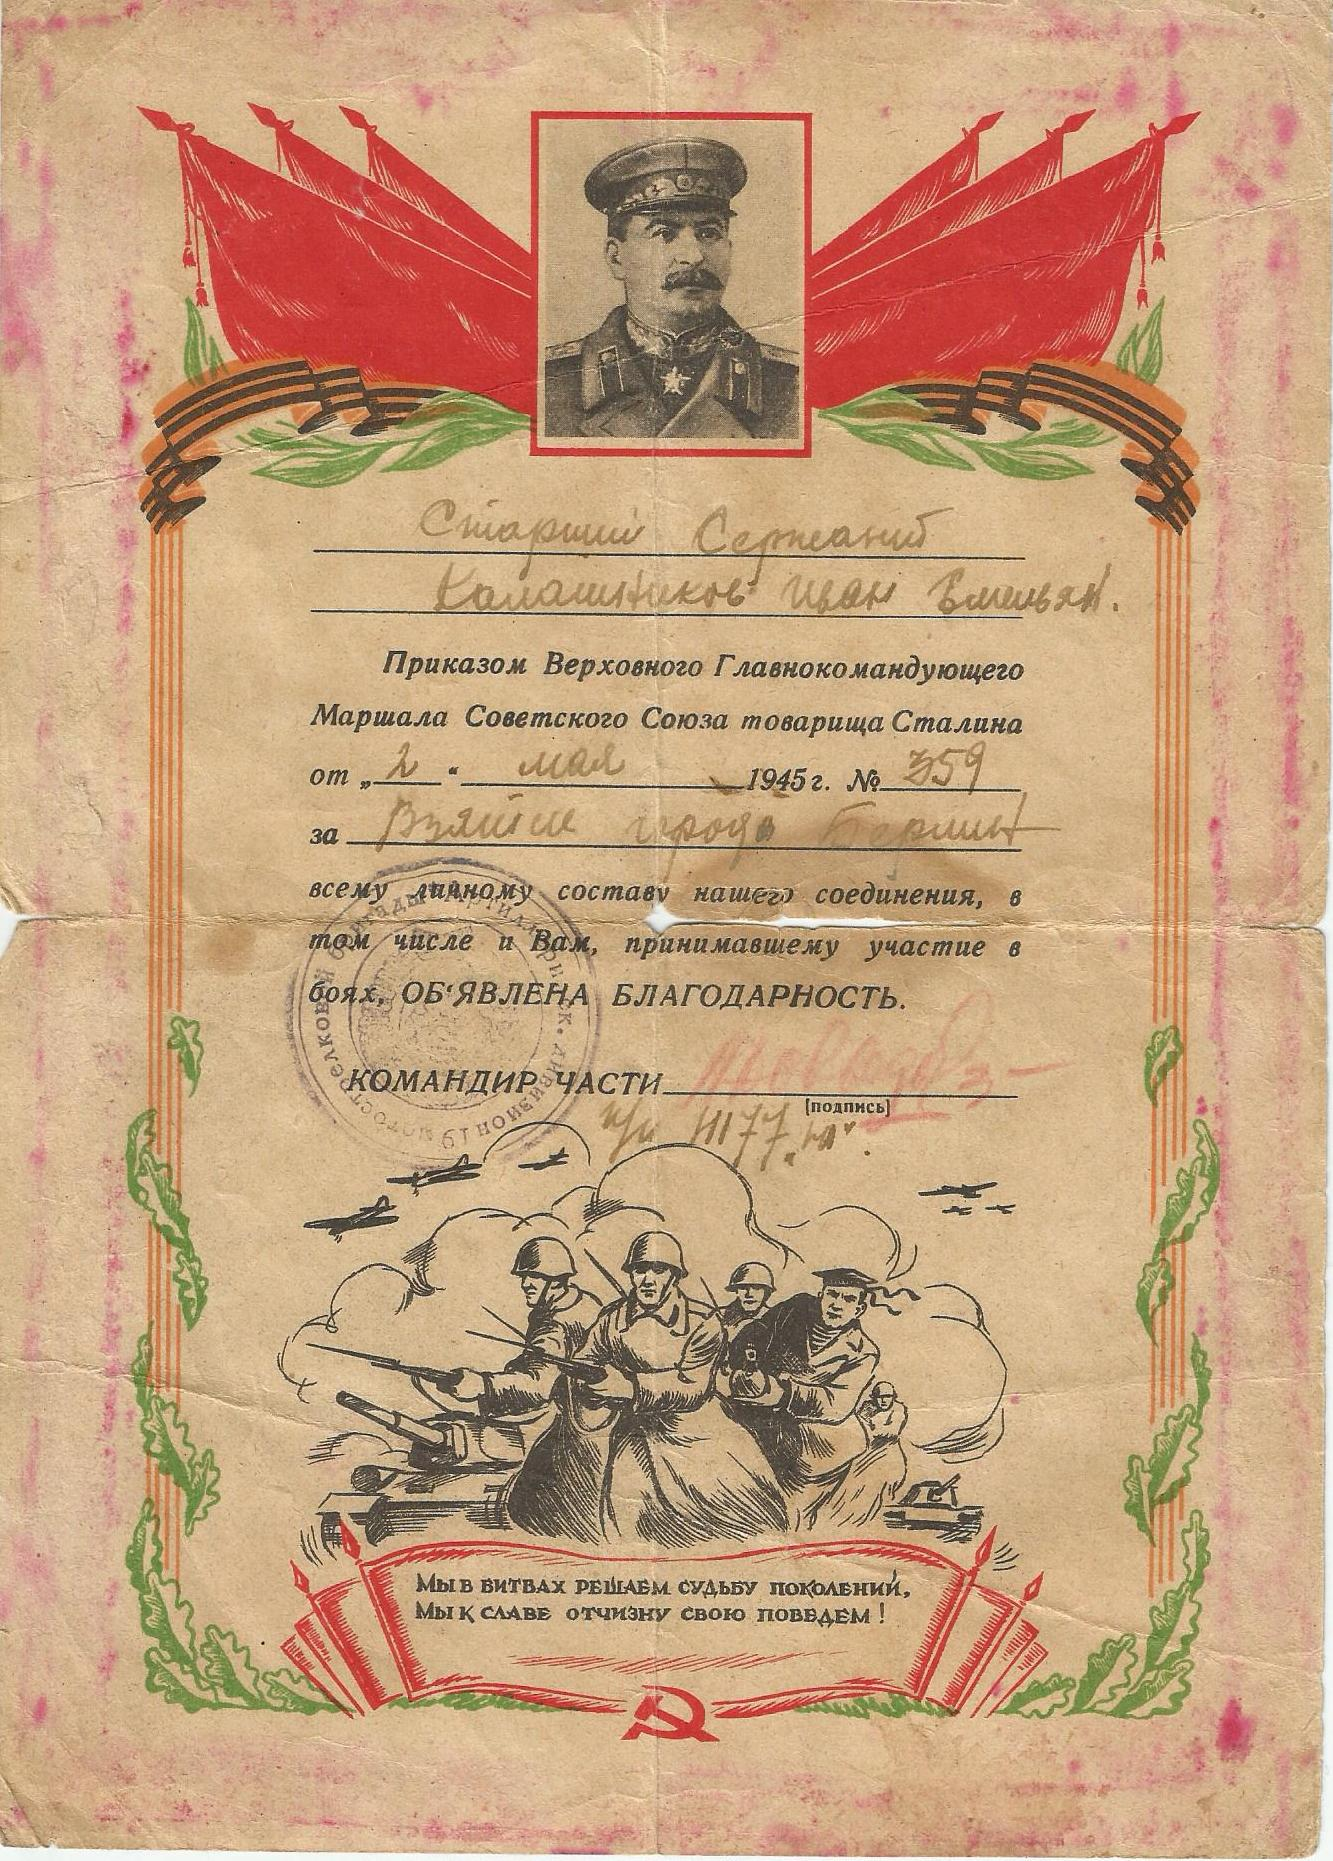 Старший Сержант
Калашников Иван Емельян.
Приказом Верховного Главнокомандующего
Маршала Советского Союза товарища Сталина
от „2“ мая 1945 г. № 359
за Взятие города Берлин
всему личному составу нашего соединения, в
том числе и Вам, принимавшему участие в
боях, ОБ'ЯВЛЕНА БЛАГОДАРНОСТЬ.
КОМАНДИР ЧАСТИ
[подпись]
МЫ В БИТВАХ РЕШАЕМ СУДЬБУ ПОКОЛЕНИЙ,
МЫ К СЛАВЕ ОТЧИЗНУ СВОЮ ПОВЕДЕМ!